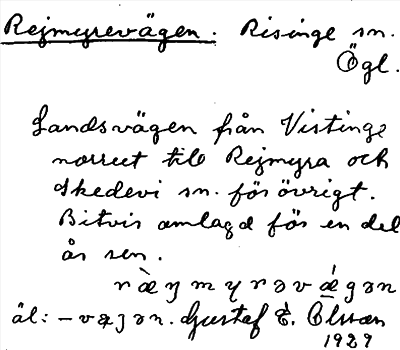 Rejmyrevägen. Risinge sn.
Ögl.
Landsvägen från Vistinge
norrut till Rejmyra och
Skedevi sn. för övrigt.
Bitvis omlagd för en del
år sen.
äl: –
Gustaf E. Olsson
1929